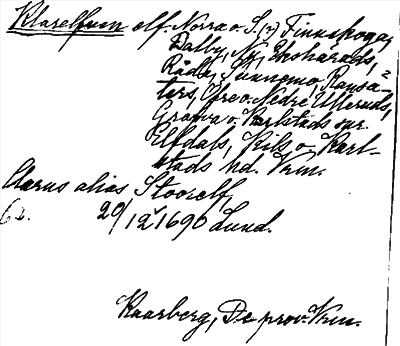 Klarelfven elf. Norra o. S. (?) Finnskoga,
Dalby, N. Ekshärads,
Råda, Sunnemo, Ransä-
ters, Öfre o. Nedre Ulleruds,
Grava o. Karlstads snr.
Elfdals, Kils o. Karl-
stads hd. Vrm.
Clarus alias Stoorelf,
20/12 1690 Lund.
Kaarberg, De prov. Vrm.